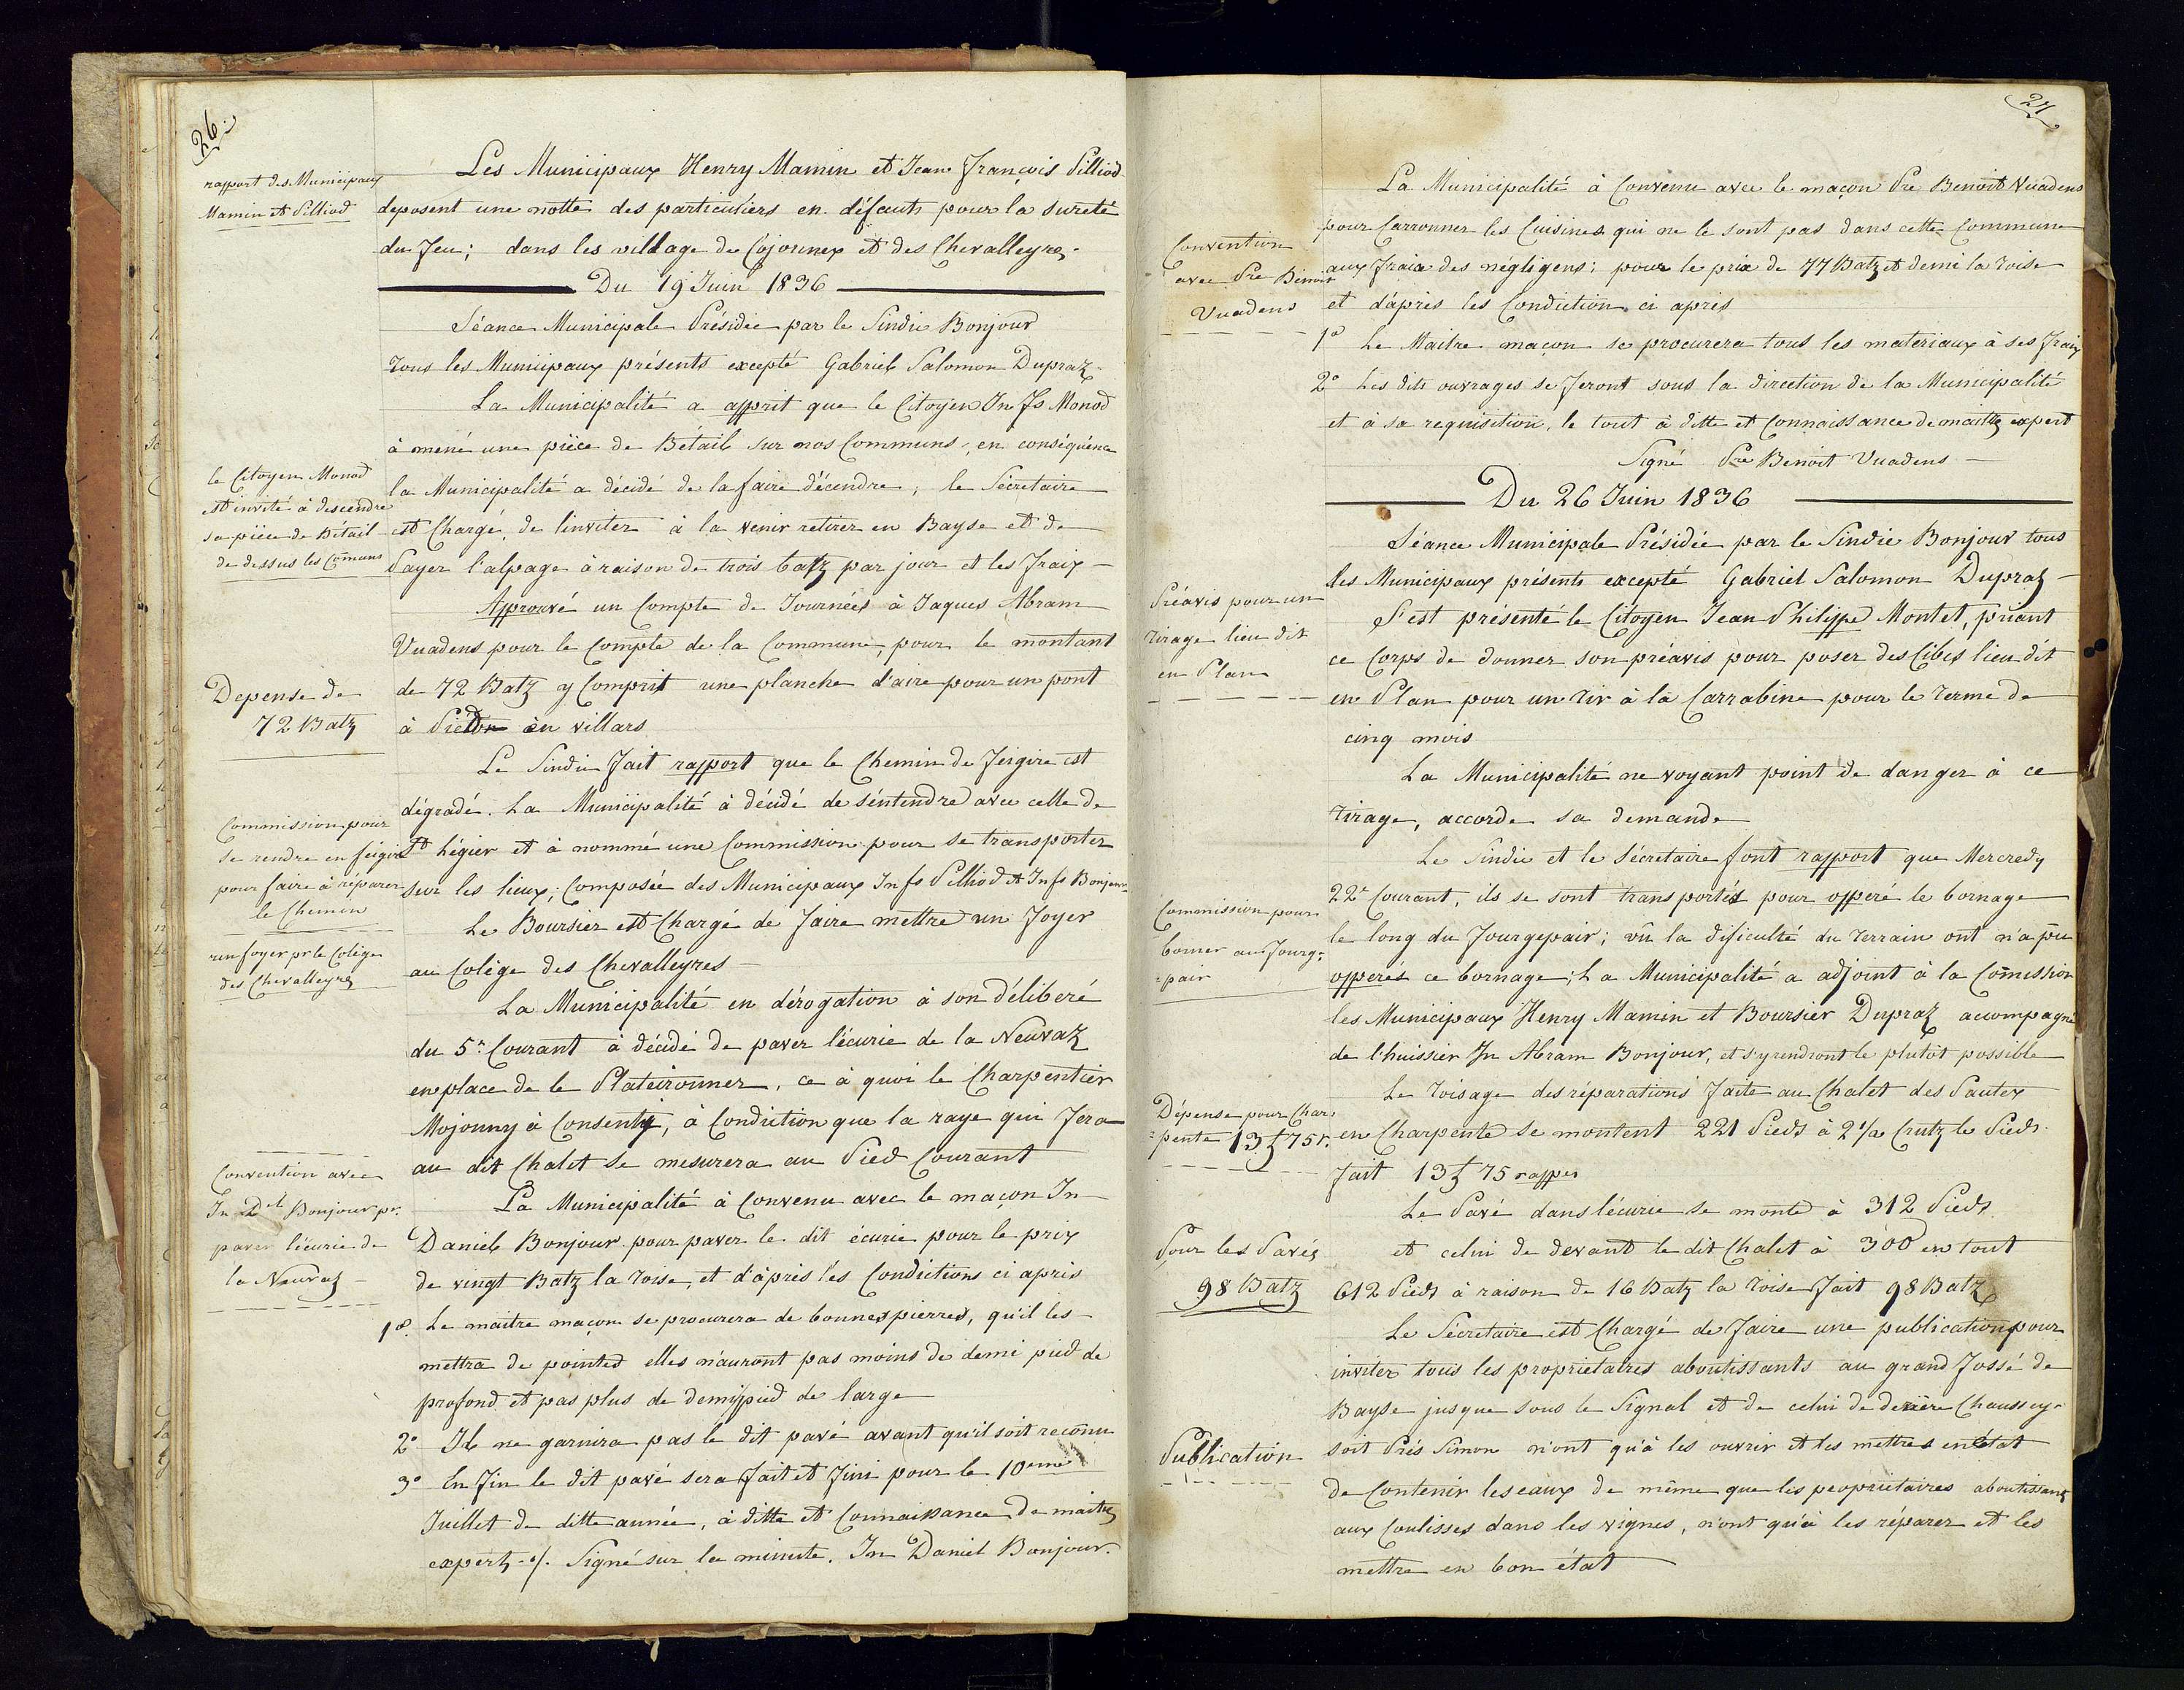 26.
rapport des Municipaux
Mamin et Pilliod
Les Municipaux Henry Mamin et Jean François Pilliod
deposent une notte des particuliers en défauts pour la sureté
du feu; dans les village de Cojonnex et des Chevalleyres.
Du 19 Juin 1836
Séance Municipale Présidie par le Sindic Bonjour
tous les Municipaux présents excepté Gabriel Salomon Dupraz.
La Municipalité a apprit que le Citoyen Jn Fs Monod
à mené une pièce de Bétail sur nos Communs, en conséquence
le Citoyen Monod
est invité à descendre
sa pièce de Bétail
de dessus les Comuns
la Municipalité a décidé de la faire décendre; le Sécretaire
est Chargé, de linviter à la venir retirer en Bayse et de
Payer l'alpage à raison de trois batz par jour et les fraix
Approuvé un Compte de Journées à Jaques Abram
Vuadens pour le Compte de la Commune, pour le montant
de 72 Batz y Comprit une planche d'aire pour un pont
à Pied en villars
Depense de
72 Batz
Le Sindic fait rapport que le Chemin de feigire est
dégradé. La Municipalité à décidé de séntendre avec celle de
St Légier et à nommé une Commission pour se transporter
sur les lieux; Composée des Municipaux Jn fs Pilliod et Jn fs Bonjour
Commission pour
se rendre en feigire
pour faire à réparer
le Chemin
Le Boursier est Chargé de faire mettre un foyer
au Colége des Chevalléyres
un foyer pr le Colège
des Chevalleyres
La Municipalité en dérogation à son déliberé
du 5e Courant à décidé de paver l'écurie de la Neuvaz
enplace de le Plateironner, ce à quoi le Charpentier
Mojonny à Consenty, à Condition que la raye qui fera
au dit Chalet se mesurera au Pied Courant
Convention avec
Jn Del Bonjour pr.
paver l'écurie de
la Neuvaz
La Municipalité à Convenu avec le maçon Jn
Daniel Bonjour pour paver le dit écurie pour le prix
de vingt Batz la toise, et d'àprès les Condictions ci après
1o. Le maitre maçon se procurera de bonnes pierres, qu'il les
mettra de pointes elles n'auront pas moins de demi pied de
profond et pas plus de demi pied de large
2o Il ne garnira pas le dit pavé avant qu'il soit reconnu
3o En fin le dit pavé sera fait et fini pour le 10eme
Juillet de ditte année, à ditte et Connaissance de maitres
expertz ./. Signé sur la minute. Jn Daniel Bonjour.
27
La Municipalité à Convenu avec le maçon Pre Benoit Vuadens
pour Carronner les Cuisines qui ne le sont pas dans cette Commune
aux fraix des négligens; pour le prix de 77 Batz et demi la toise
et d'après les Condiction ci après
Convention
avec Pre Benoit
Vuadens
1o Le Maitre maçon se procurera tous les materiaux à ses fraix
2o Les dits ouvrages se feront sous la direction de la Municipalité
et à sa requisition, le tout à ditte et Connaissance de maitre expert
Signé Pre Benoit Vuadens
Du 26 Juin 1836
Séance Municipale Présidie par le Sindic Bonjour tous
les Municipaux présents excepté Gabriel Salomon Dupraz
Préavis pour un
tirage lieu dit
en Plan
S'est présenté le Citoyen Jean Philippe Montet, priant
ce Corps de donner son préavis pour poser des Cibes lieu dit
en Plan pour un tir à la Carrabine pour le terme de
cinq mois
La Municipalité ne voyant point de danger à ce
tirage, accorde sa demande
Le Sindic et le Sécretaire font rapport que Mercredy
22e Courant, ils se sont transportés pour opperé le bornage
le long du fourgepair; vû la dificulté du terrain ont n'a pu
opperés ce bornage; La Municipalité a adjoint à la Comission
les Municipaux Henry Mamin et Boursier Dupraz accompagné
de l'huissier Jn Abram Bonjour, et s'y rendront le plutôt possible
Commission pour
borner au fourg=
=pair
Le toisage des réparations faite au Chalet des Pautex
en Charpente se montent 221 Pieds à 2 1/2 Crutz le Pied
fait 13 f 75 rappes
Dépense pour Char=
=pente 13 f 75 r.
Le Pavé dans l'écurie se monte à 312 Pieds
et celui de devant le dit Chalet à 300 en tout
612 Pieds à raison de 16 Batz la toise fait 98 Batz
Pour les Pavés
98 Batz
Le Sécretaire est Chargé de faire une publication pour
inviter tous les propriétaires aboutissants au grand fossé de
Bayse jusque sous le Signal et de celui de derière Chaussey
soit Prés Simon n'ont qu'à les ouvrir et les mettres en état
de Contenir les eaux de même que les propriétaires aboutissans
aux Coulisses dans les vignes, n'ont qu'à les réparer et les
mettre en bon état
Publication